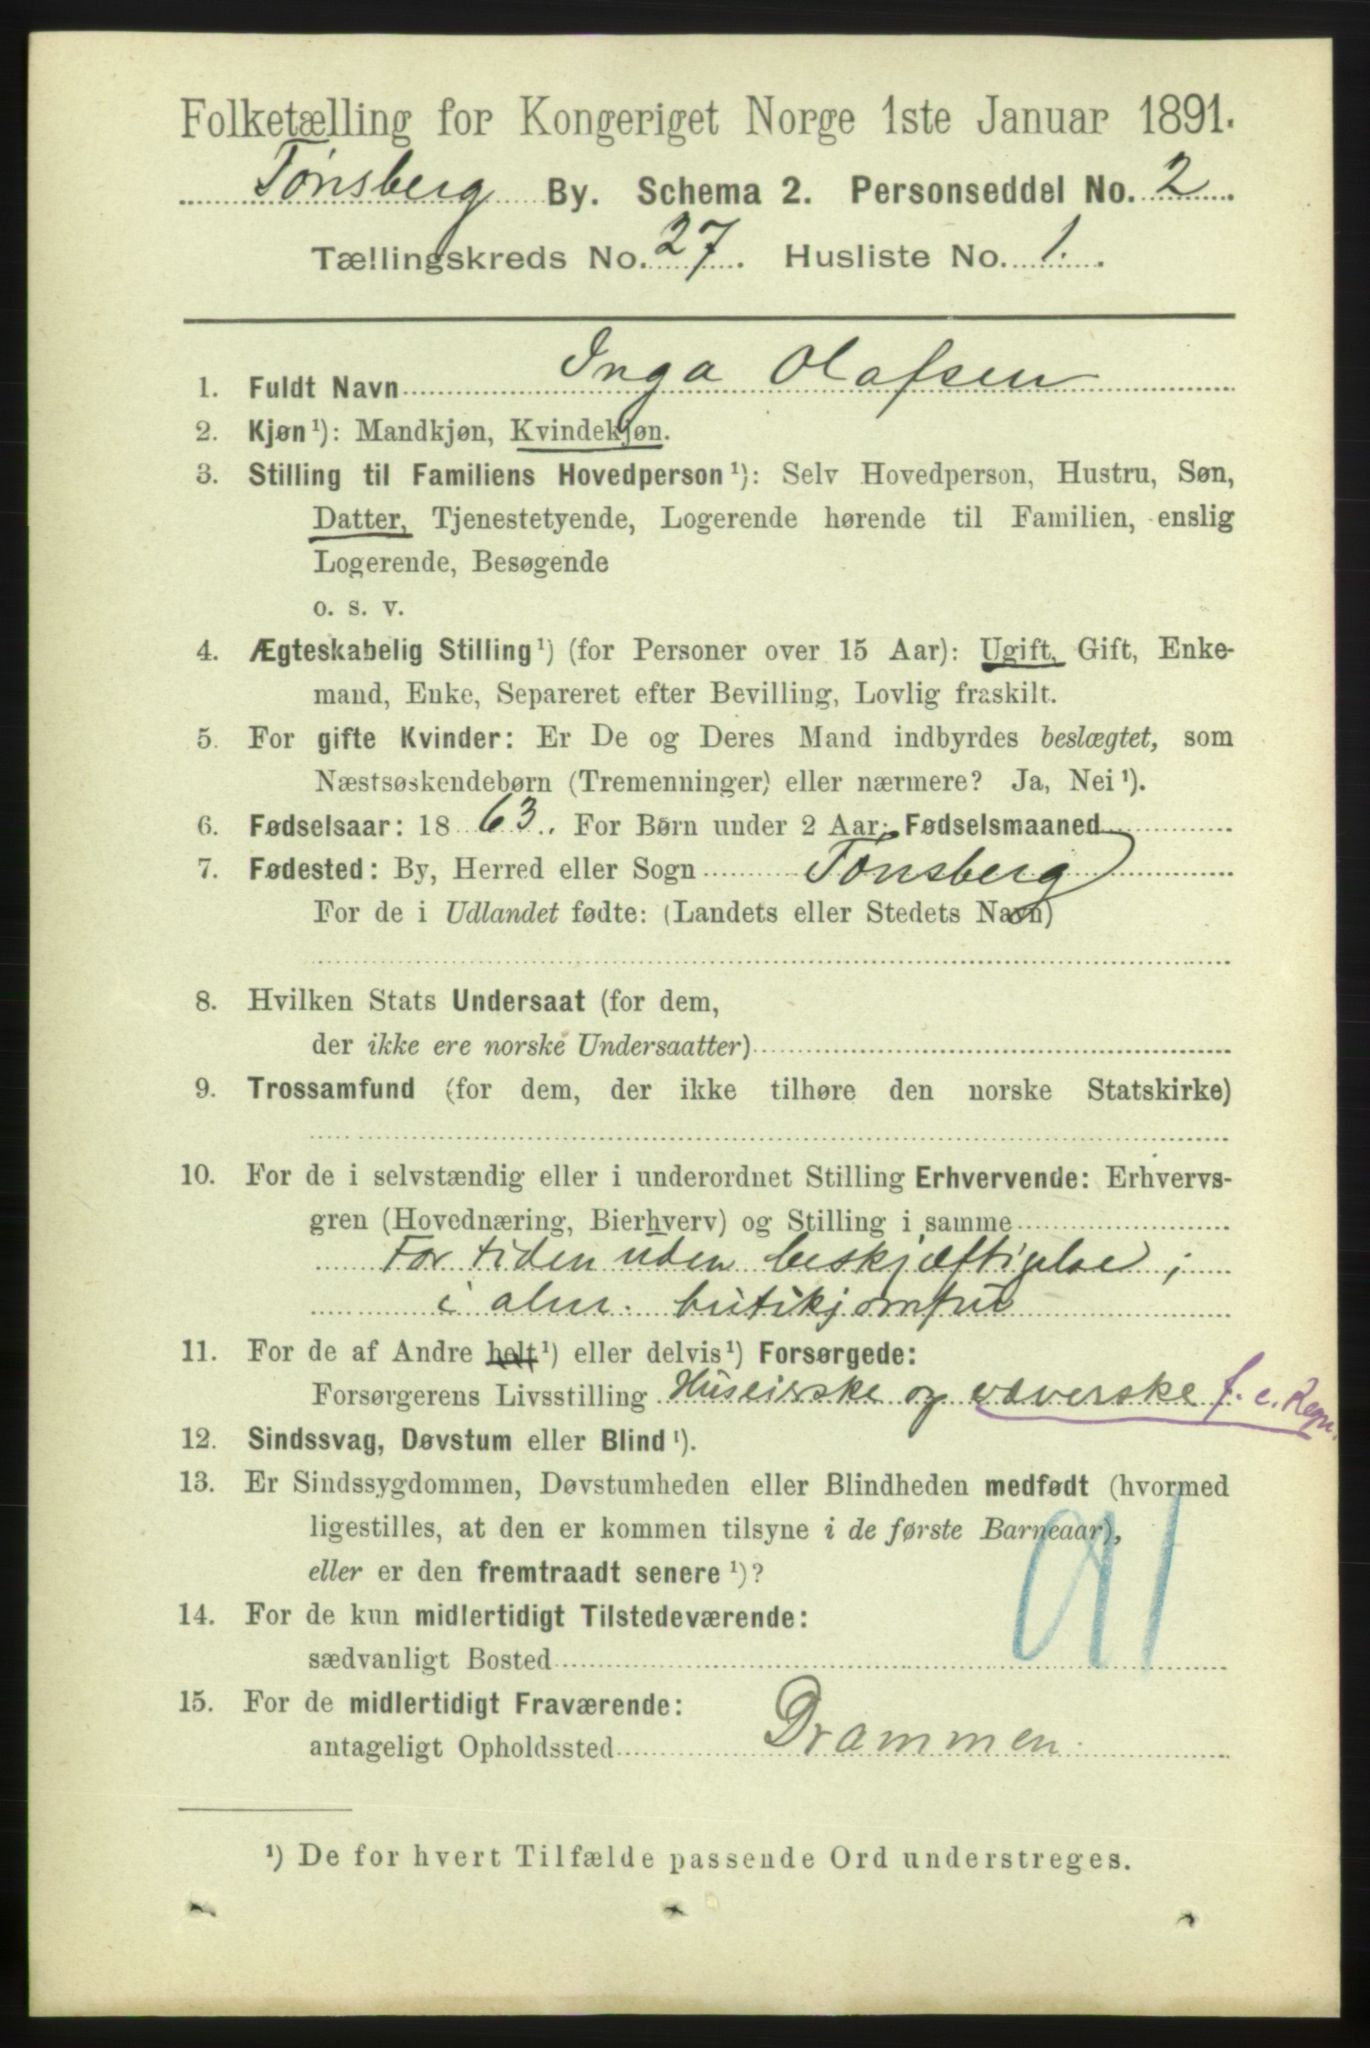 Folketælling for Kongeriget Norge 1ste Januar 1891.
Tønsberg By. Schema 2. Personseddel No. 2
Tællingskreds No. 27. Husliste No. 1.
1. Fuldt Navn Inga Olafsen
2. Kjøn¹): Mandkjøn, Kvindekjøn.
3. Stilling til Familiens Hovedperson¹): Selv Hovedperson, Hustru, Søn,
Datter, Tjenestetyende, Logerende hørende til Familien, enslig
Logerende, Besøgende
o. s. v.
4. Ægteskabelig Stilling¹) (for Personer over 15 Aar): Ugift, Gift, Enke-
mand, Enke, Separeret efter Bevilling, Lovlig fraskilt.
5. For gifte Kvinder: Er De og Deres Mand indbyrdes beslægtet, som
Næstsøskendebørn (Tremenninger) eller nærmere? Ja, Nei¹).
6. Fødselsaar: 1863. For Børn under 2 Aar: Fødselsmaaned
7. Fødested: By, Herred eller Sogn Tønsberg
For de i Udlandet fødte: (Landets eller Stedets Navn)
8. Hvilken Stats Undersaat (for dem,
der ikke ere norske Undersaatter)
9. Trossamfund (for dem, der ikke tilhøre den norske Statskirke)
10. For de i selvstændig eller i underordnet Stilling Erhvervende: Erhvervs-
gren (Hovednæring, Bierhverv) og Stilling i samme
For tiden uden beskjæftigelse;
i alm. butikjomfru
11. For de af Andre helt¹) eller delvis¹) Forsørgede:
Forsørgerens Livsstilling Huseierske og væverske f. e. Regn.
12. Sindssvag, Døvstum eller Blind¹).
13. Er Sindssygdommen, Døvstumheden eller Blindheden medfødt (hvormed
ligestilles, at den er kommen tilsyne i de første Barneaar),
eller er den fremtraadt senere¹)?
91
14. For de kun midlertidigt Tilstedeværende:
sædvanligt Bosted
15. For de midlertidigt Fraværende:
antageligt Opholdssted Drammen
¹) De for hvert Tilfælde passende Ord understreges.